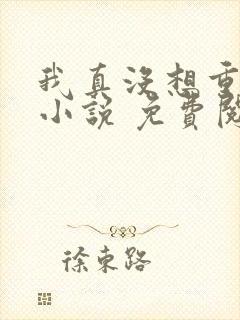 我真没想重
小說 免費閱
徐東路